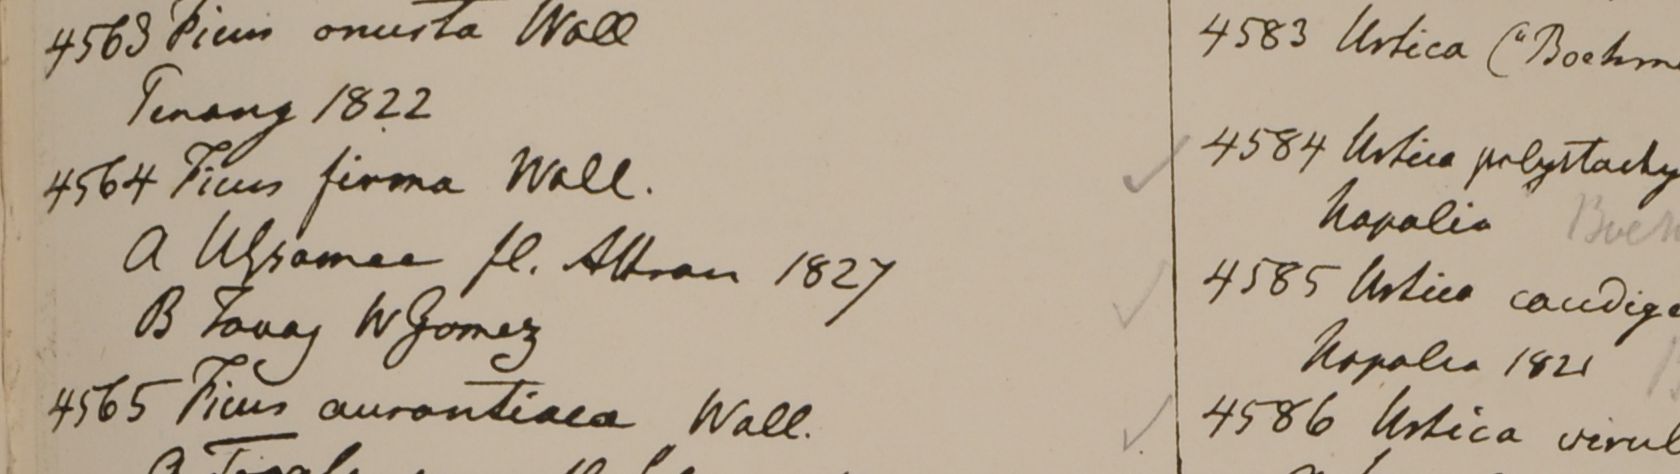 4563 Ficus onusta Wall
Penang 1822
4564 Ficus firma Wall.
A fl. Attran 1827
B Tavoy W Gomez
4565 Ficus aurantiaca Wall.
4583 Urtica ("Boehm
4584 Urtica polystachy
Napalia Boeh
4585 Urtica caudige
Napalia 1821
4586 Urtica virul